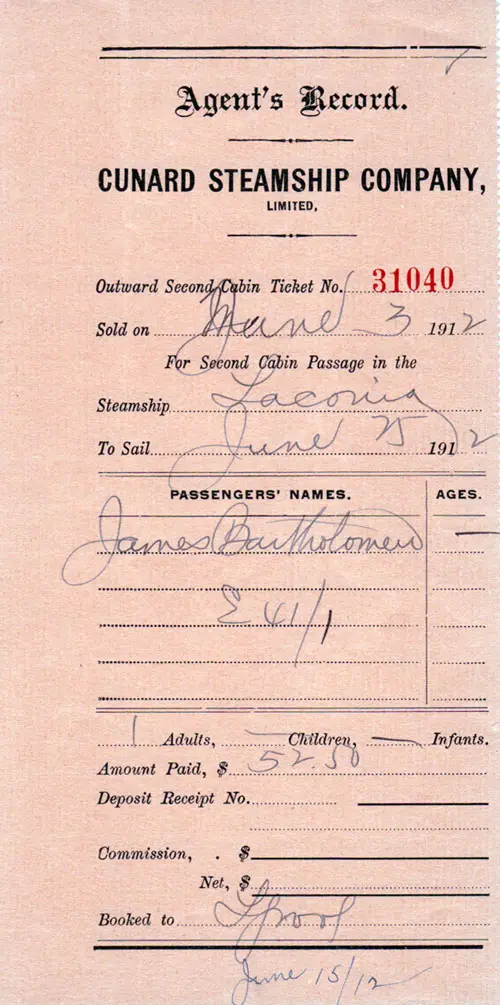 Agent's Record.
CUNARD STEAMSHIP COMPANY,
LIMITED,
Outward Second Cabin Ticket No. 31040
Sold on June 3 1912
For Second Cabin Passage in the
Steamship Laconia
To Sail June 25 1912
PASSENGERS' NAMES. AGES.
James Bartholomew —
E 41/1
1 Adults, — Children, — Infants.
Amount Paid, $ 52.50
Deposit Receipt No.
Commission, . $
Net, $
Booked to Lpool
June 15/12